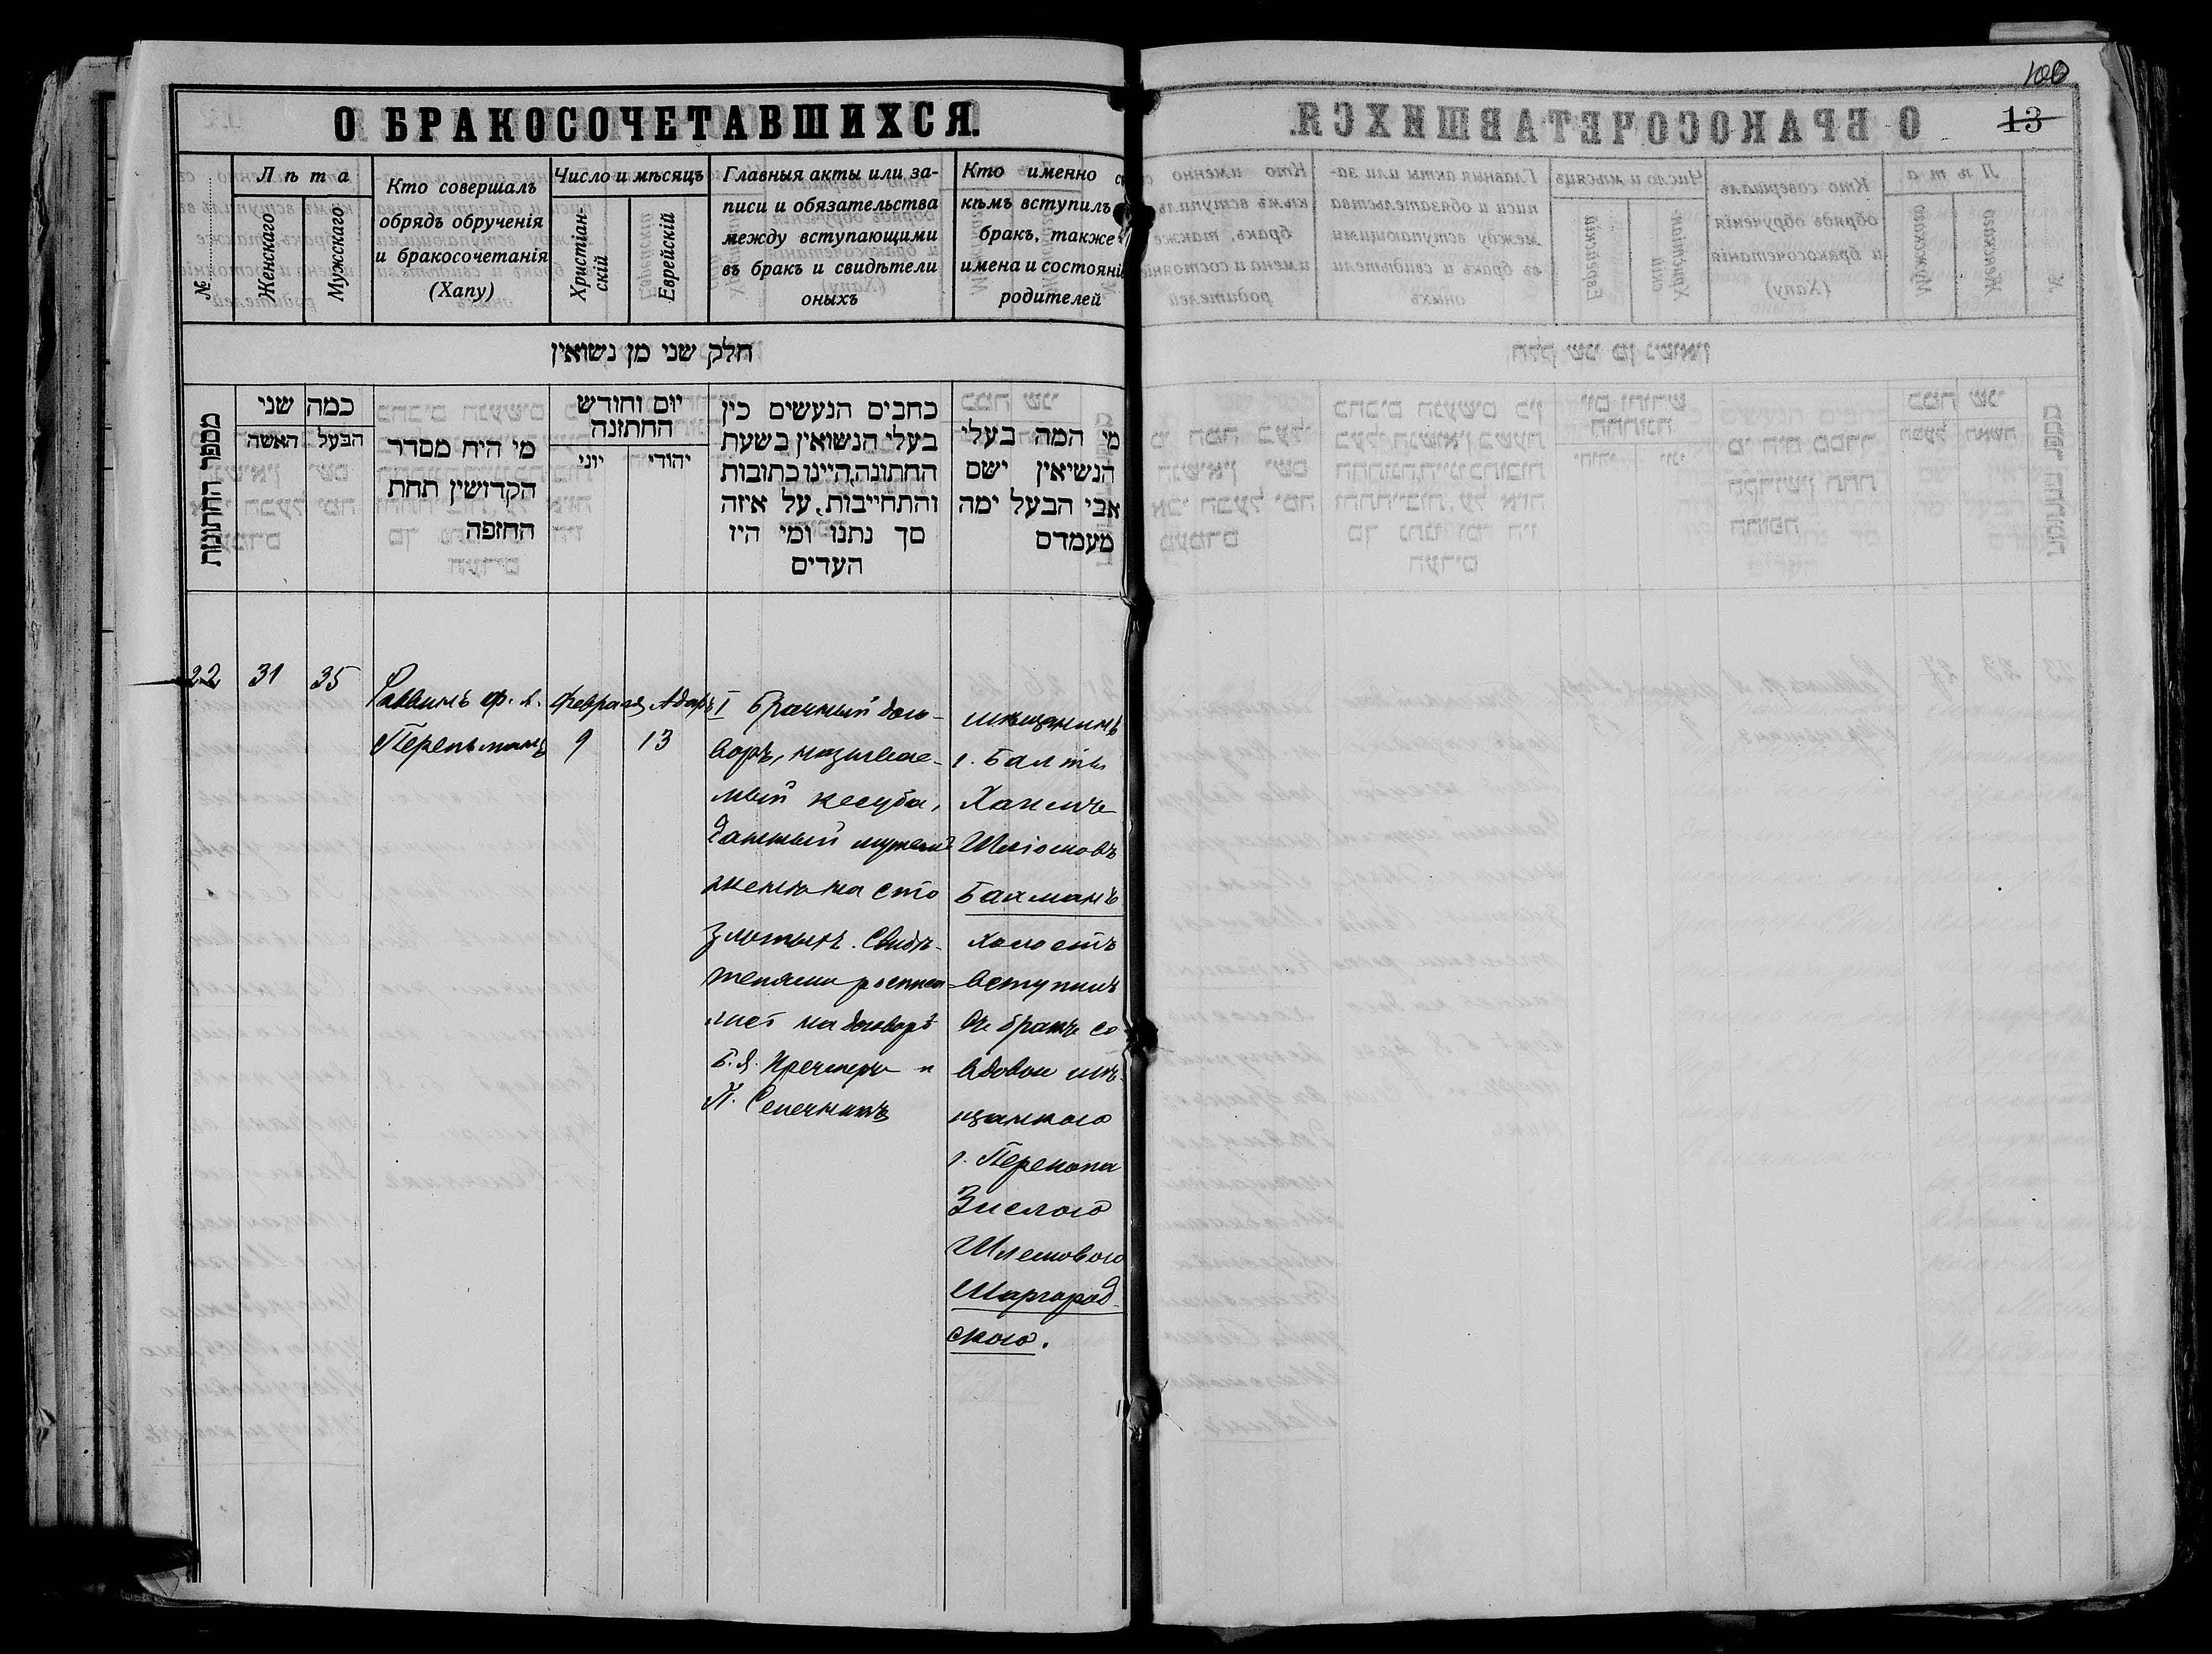 100
13
О БРАКОСОЧЕТАВШИХСЯ.
№
Лѣта
Женскаго
Мужскаго
Кто совершалъ
обрядъ обрученія
и бракосочетанія
(Хапу)
Число и мѣсяцъ
Христіан-
скій
Еврейскій
Главныя акты или за-
писи и обязательства
между вступающими
въ бракъ и свидѣтели
оныхъ
Кто именно
кѣмъ вступилъ
бракъ, также
имена и состояні
родителей
חלק שני מן נשואין
מספר החתונות
כמה שני
האשה
הבעל
מי היח מסדר
הקדושין תחת
החופה
יום וחודש
החתונה
יוני
יהודי
כתבים הנעשים כין
בעלי הנשואין בשעת
החתונה,היינו כתובות
והתחייבות, על איזה
סך נתנו ומי היו
העדים
מי המה בעלי
הנשיאין ישם
אבי הבעל ימה
מעמדם
22
31
35
Раввинъ Ф. А.
Перельманъ
Февраля
9
Адаръ I
13
Брачный дого-
воръ, называе-
мый кесуба,
данный мужемъ
женѣ на сто
злотыхъ. Свидѣ-
телями росписа-
лись на договорѣ
Б. Я. и
П.
мѣщанинъ
г. Балты
Шліомовъ
холостъ
вступилъ
въ бракъ со
вдовою мѣ-
щанкою
г. Перекопа
Зислою
Шлемовою
Шаргород-
скою.